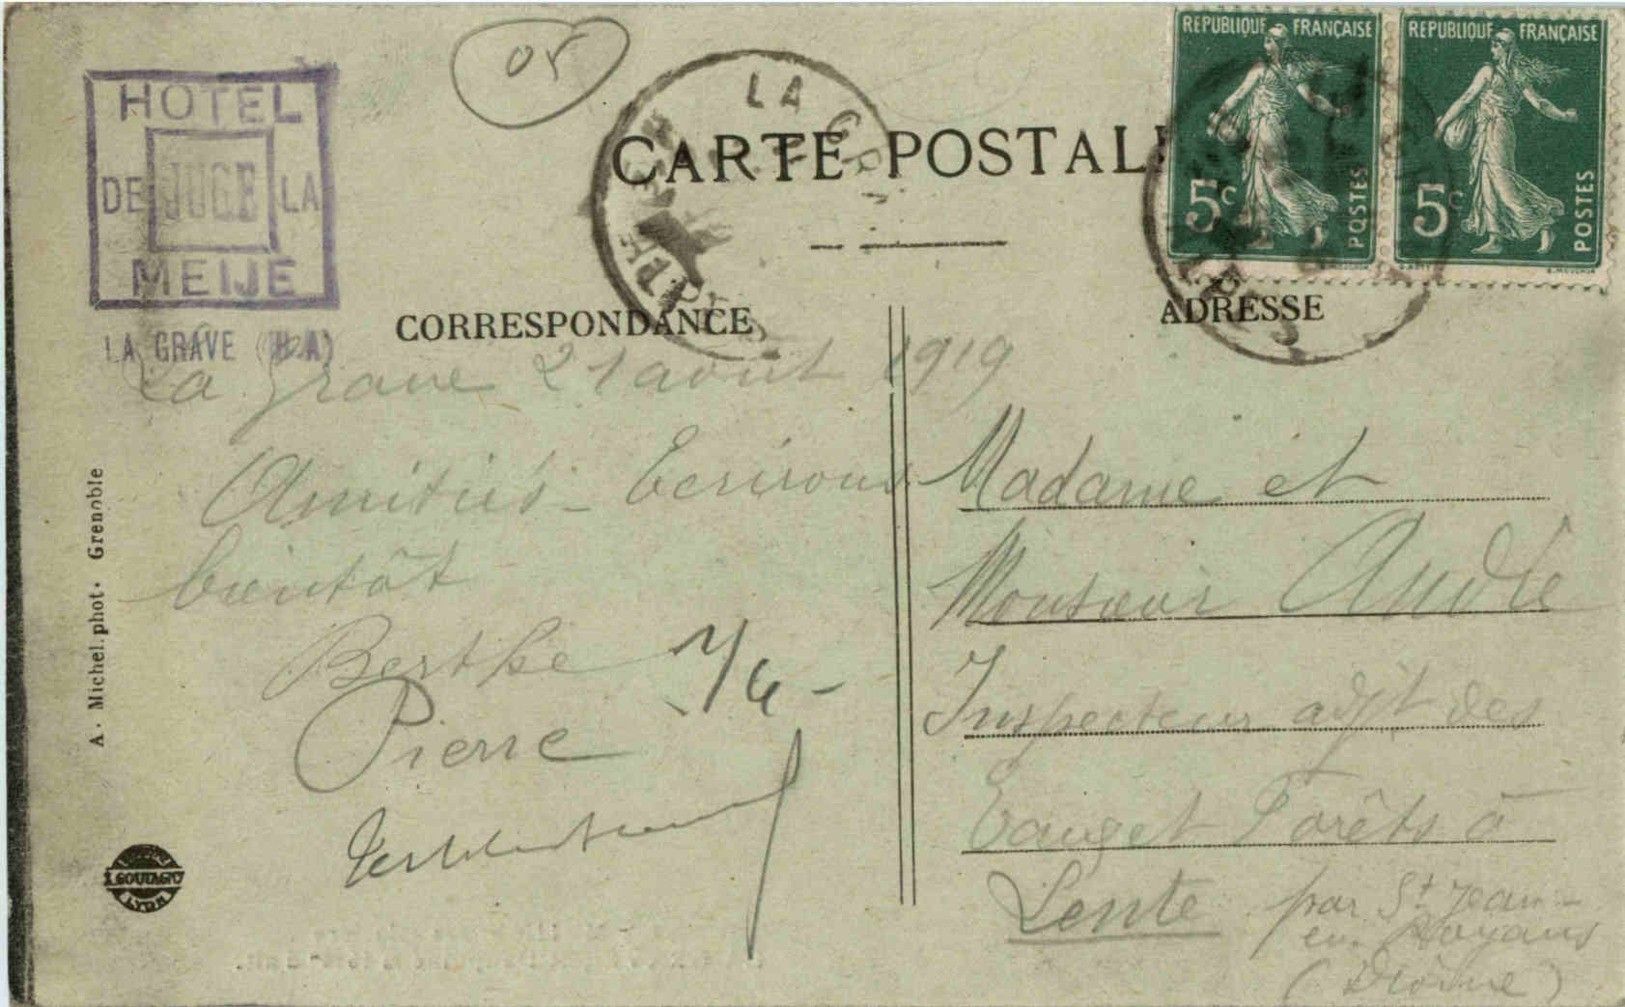 05
HOTEL
DE JUGE LA
MEIJE
LA GRAVE (H A)
CARTE POSTALE
LA GR
REPUBLIQUE FRANÇAISE
5c POSTES
REPUBLIQUE FRANÇAISE
5c POSTES
CORRESPONDANCE
La Grave 21 août 1919
Amitiés - Ecrirons
bientôt
Berthe
Pierre
A. Michel. phot. Grenoble
LYON
ADRESSE
Madame et
Monsieur André
Inspecteur adjt des
Eaux et Forêts à
Lente par St Jean-
en-Royans
(Drôme)